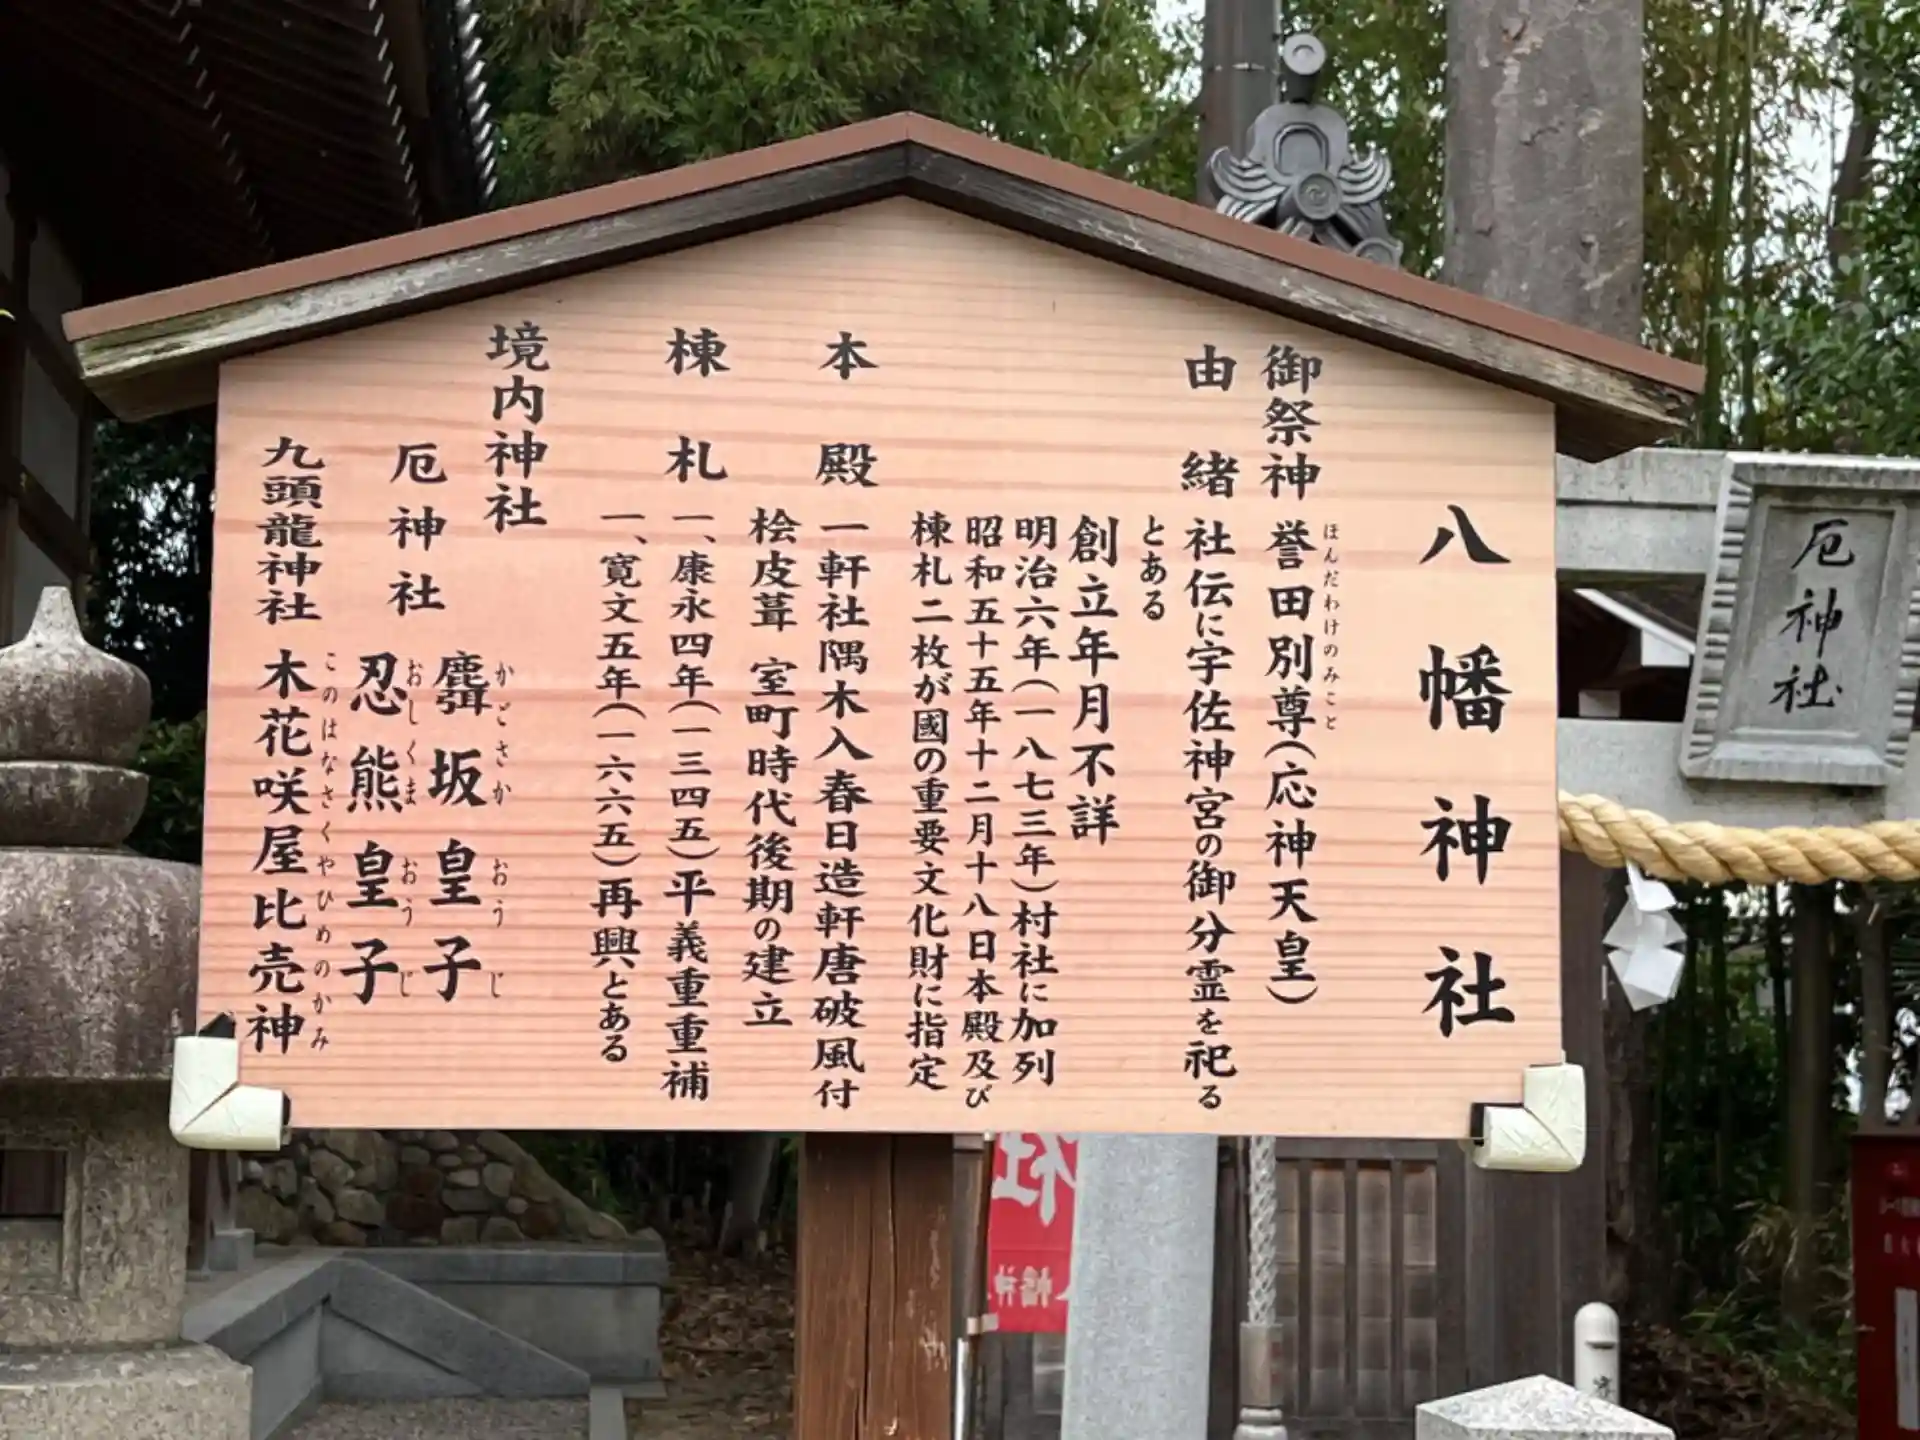 八幡神社
御祭神 誉田別尊(応神天皇)
ほんだわけのみこと
由緒 社伝に宇佐神宮の御分霊を祀る
とある
創立年月不詳
明治六年(一八七三年)村社に加列
昭和五十五年十二月十八日本殿及び
棟札二枚が國の重要文化財に指定
本殿 一軒社隅木入春日造軒唐破風付
桧皮葺 室町時代後期の建立
棟札 一、康永四年(一三四五)平義重重補
一、寛文五年(一六六五)再興とある
境内神社
厄神社 麛坂皇子
かごさか おうじ
忍熊皇子
おしくま おうじ
九頭龍神社 木花咲屋比売神
このはなさくやひめのかみ
厄神社
社
幡神